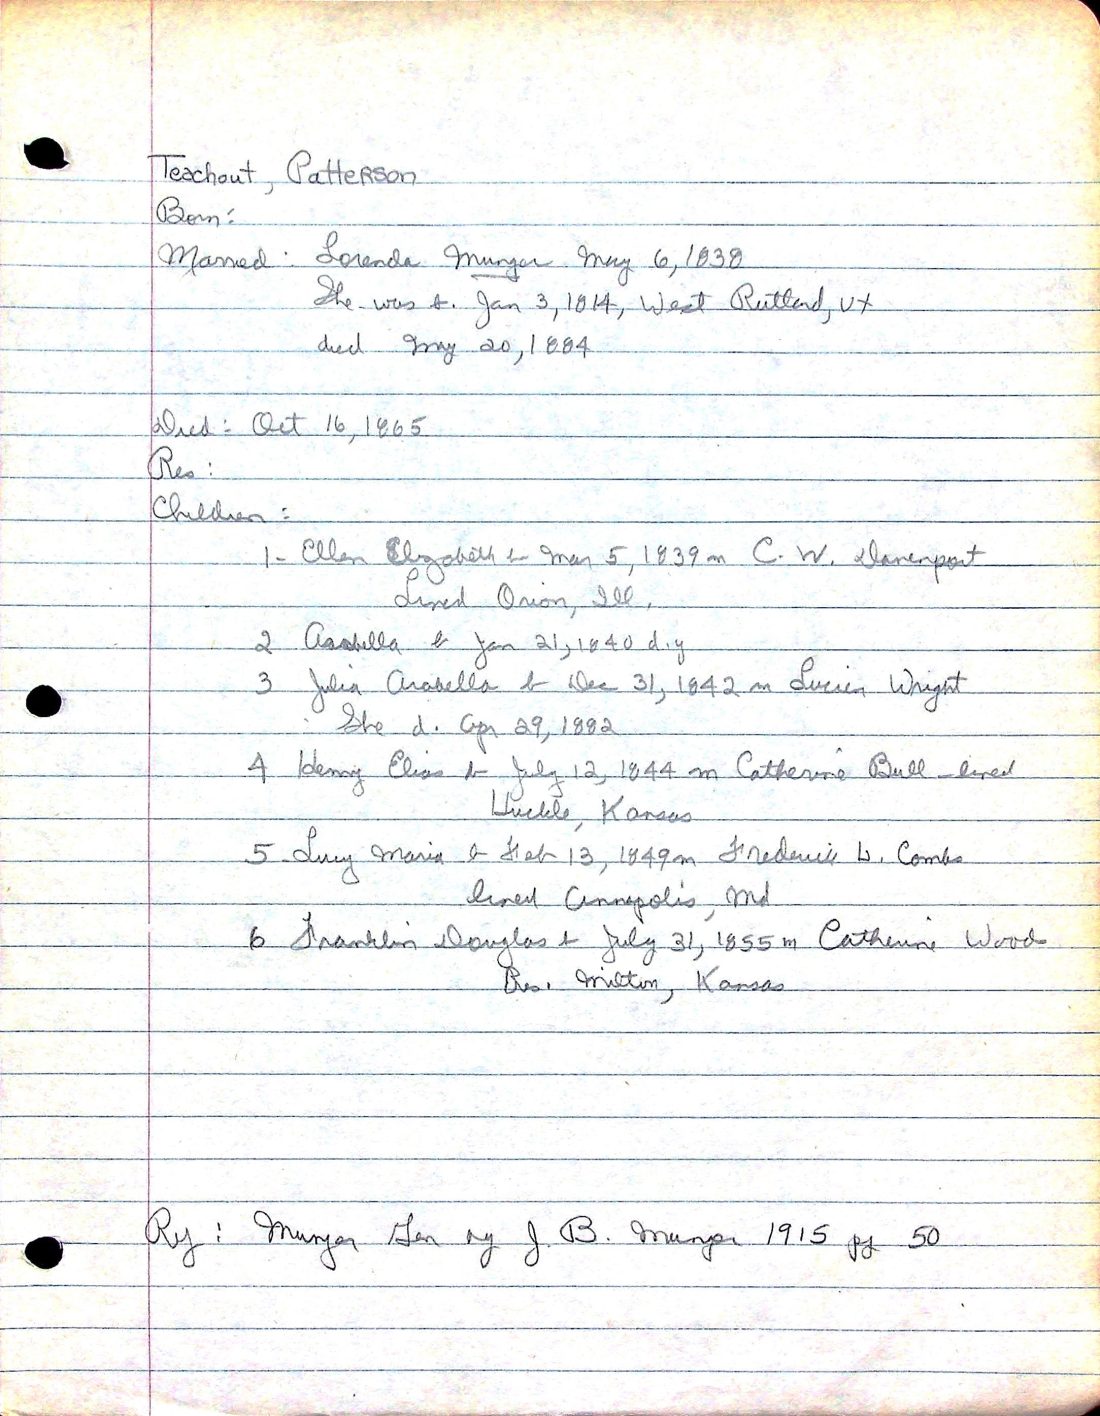 Teachout, Patterson
Born:
Married: Lorenda Munger May 6, 1838
She was b. Jan 3, 1814, West Rutland, VT
died May 20, 1884
Died: Oct 16, 1865
Res:
Children:
1- Ellen Elizabeth b Mar 5, 1839 m C. W. Davenport
Lived Orion, Ill.
2 Arabella b Jan 21, 1840 d.y
3 Julia Arabella b Dec 31, 1842 m Lucien Wright
She d. Apr 29, 1882
4 Henry Elias b July 12, 1844 m Catherine Bull - lived
Kansas
5 - Lucy Maria b Feb 13, 1849 m Frederick W. Combs
lived Annapolis, Md
6 Franklin Douglas b July 31, 1855 m Catherine Wood
Res. Milton, Kansas
Ref: Munger Gen by J. B. Munger 1915 pg 50